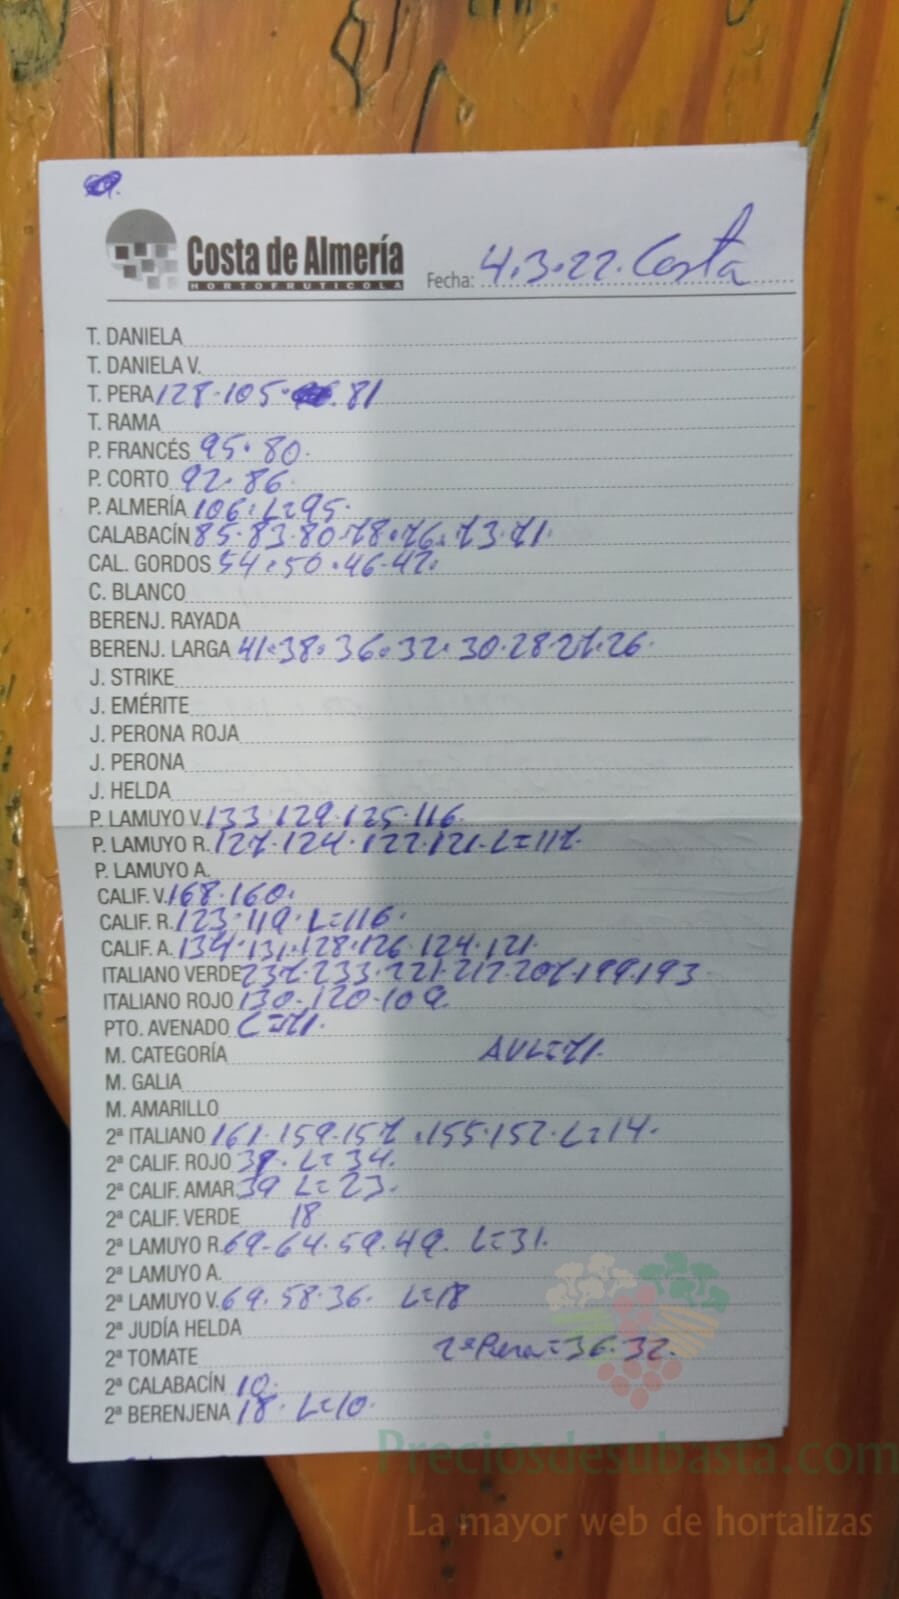 Costa de Almería
HORTOFRUTICOLA
Fecha: 4.3.22. Costa
T. DANIELA
T. DANIELA V.
T. PERA 128.105. 81
T. RAMA
P. FRANCÉS 95.80.
P. CORTO 92.86.
P. ALMERÍA 106. L=95.
CALABACÍN 85.83.80.78.76.73.71.
CAL. GORDOS 54.50.46-42.
C. BLANCO
BERENJ. RAYADA
BERENJ. LARGA 41.38.36.32.30.28.27.26.
J. STRIKE
J. EMÉRITE
J. PERONA ROJA
J. PERONA
J. HELDA
P. LAMUYO V. 133.129.125.116.
P. LAMUYO R. 127.124.122.121-L=117.
P. LAMUYO A.
CALIF. V. 168.160.
CALIF. R. 123.119. L=116.
CALIF. A. 134.131.128.126 124.121.
ITALIANO VERDE 237.233.221.217.207.199.193
ITALIANO ROJO 130.120.109.
PTO. AVENADO L=71.
M. CATEGORÍA AVL=71.
M. GALIA
M. AMARILLO
2ª ITALIANO 161.159.157.155.152.L=14.
2ª CALIF. ROJO L=34.
2ª CALIF. AMAR. 39 L=23.
2ª CALIF. VERDE 18
2ª LAMUYO R. 69-64.59.49. L=31.
2ª LAMUYO A.
2ª LAMUYO V. 69.58.36. L=18
2ª JUDÍA HELDA
2ª TOMATE 2ª Pera=36.32.
2ª CALABACÍN 10.
2ª BERENJENA 18. L=10.
Preciosdesubasta.com
La mayor web de hortalizas